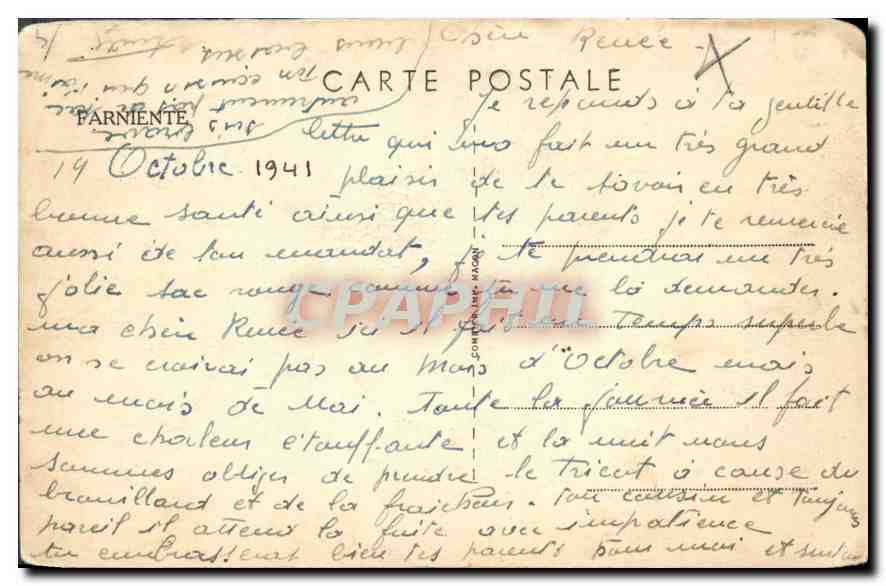 Chère Renée
CARTE POSTALE
FARNIENTE
Je reponds à ta gentille
lettre qui ma fait un très grand
14 Octobre 1941
plaisir de te savoir en très
bonne santé ainsi que tes parents je te remercie
aussi de ton mandat, je te prendrai un très
jolie sac rouge comme tu me la demander.
ma chère Renée ici il fait un Temps superbe
on se croirai pas au mois d'Octobre mais
au mois de Mai. Toute la journée il fait
une chaleur étouffante et la nuit nous
sommes obliger de prendre le tricot à cause du
brouillard et de la fraicheur. ton cousin est toujours
pareil il attend la fuite avec impatience
tu embrasseras bien tes parents pour moi et surtout
CPAPHIL
COMBIER IMP. MACON